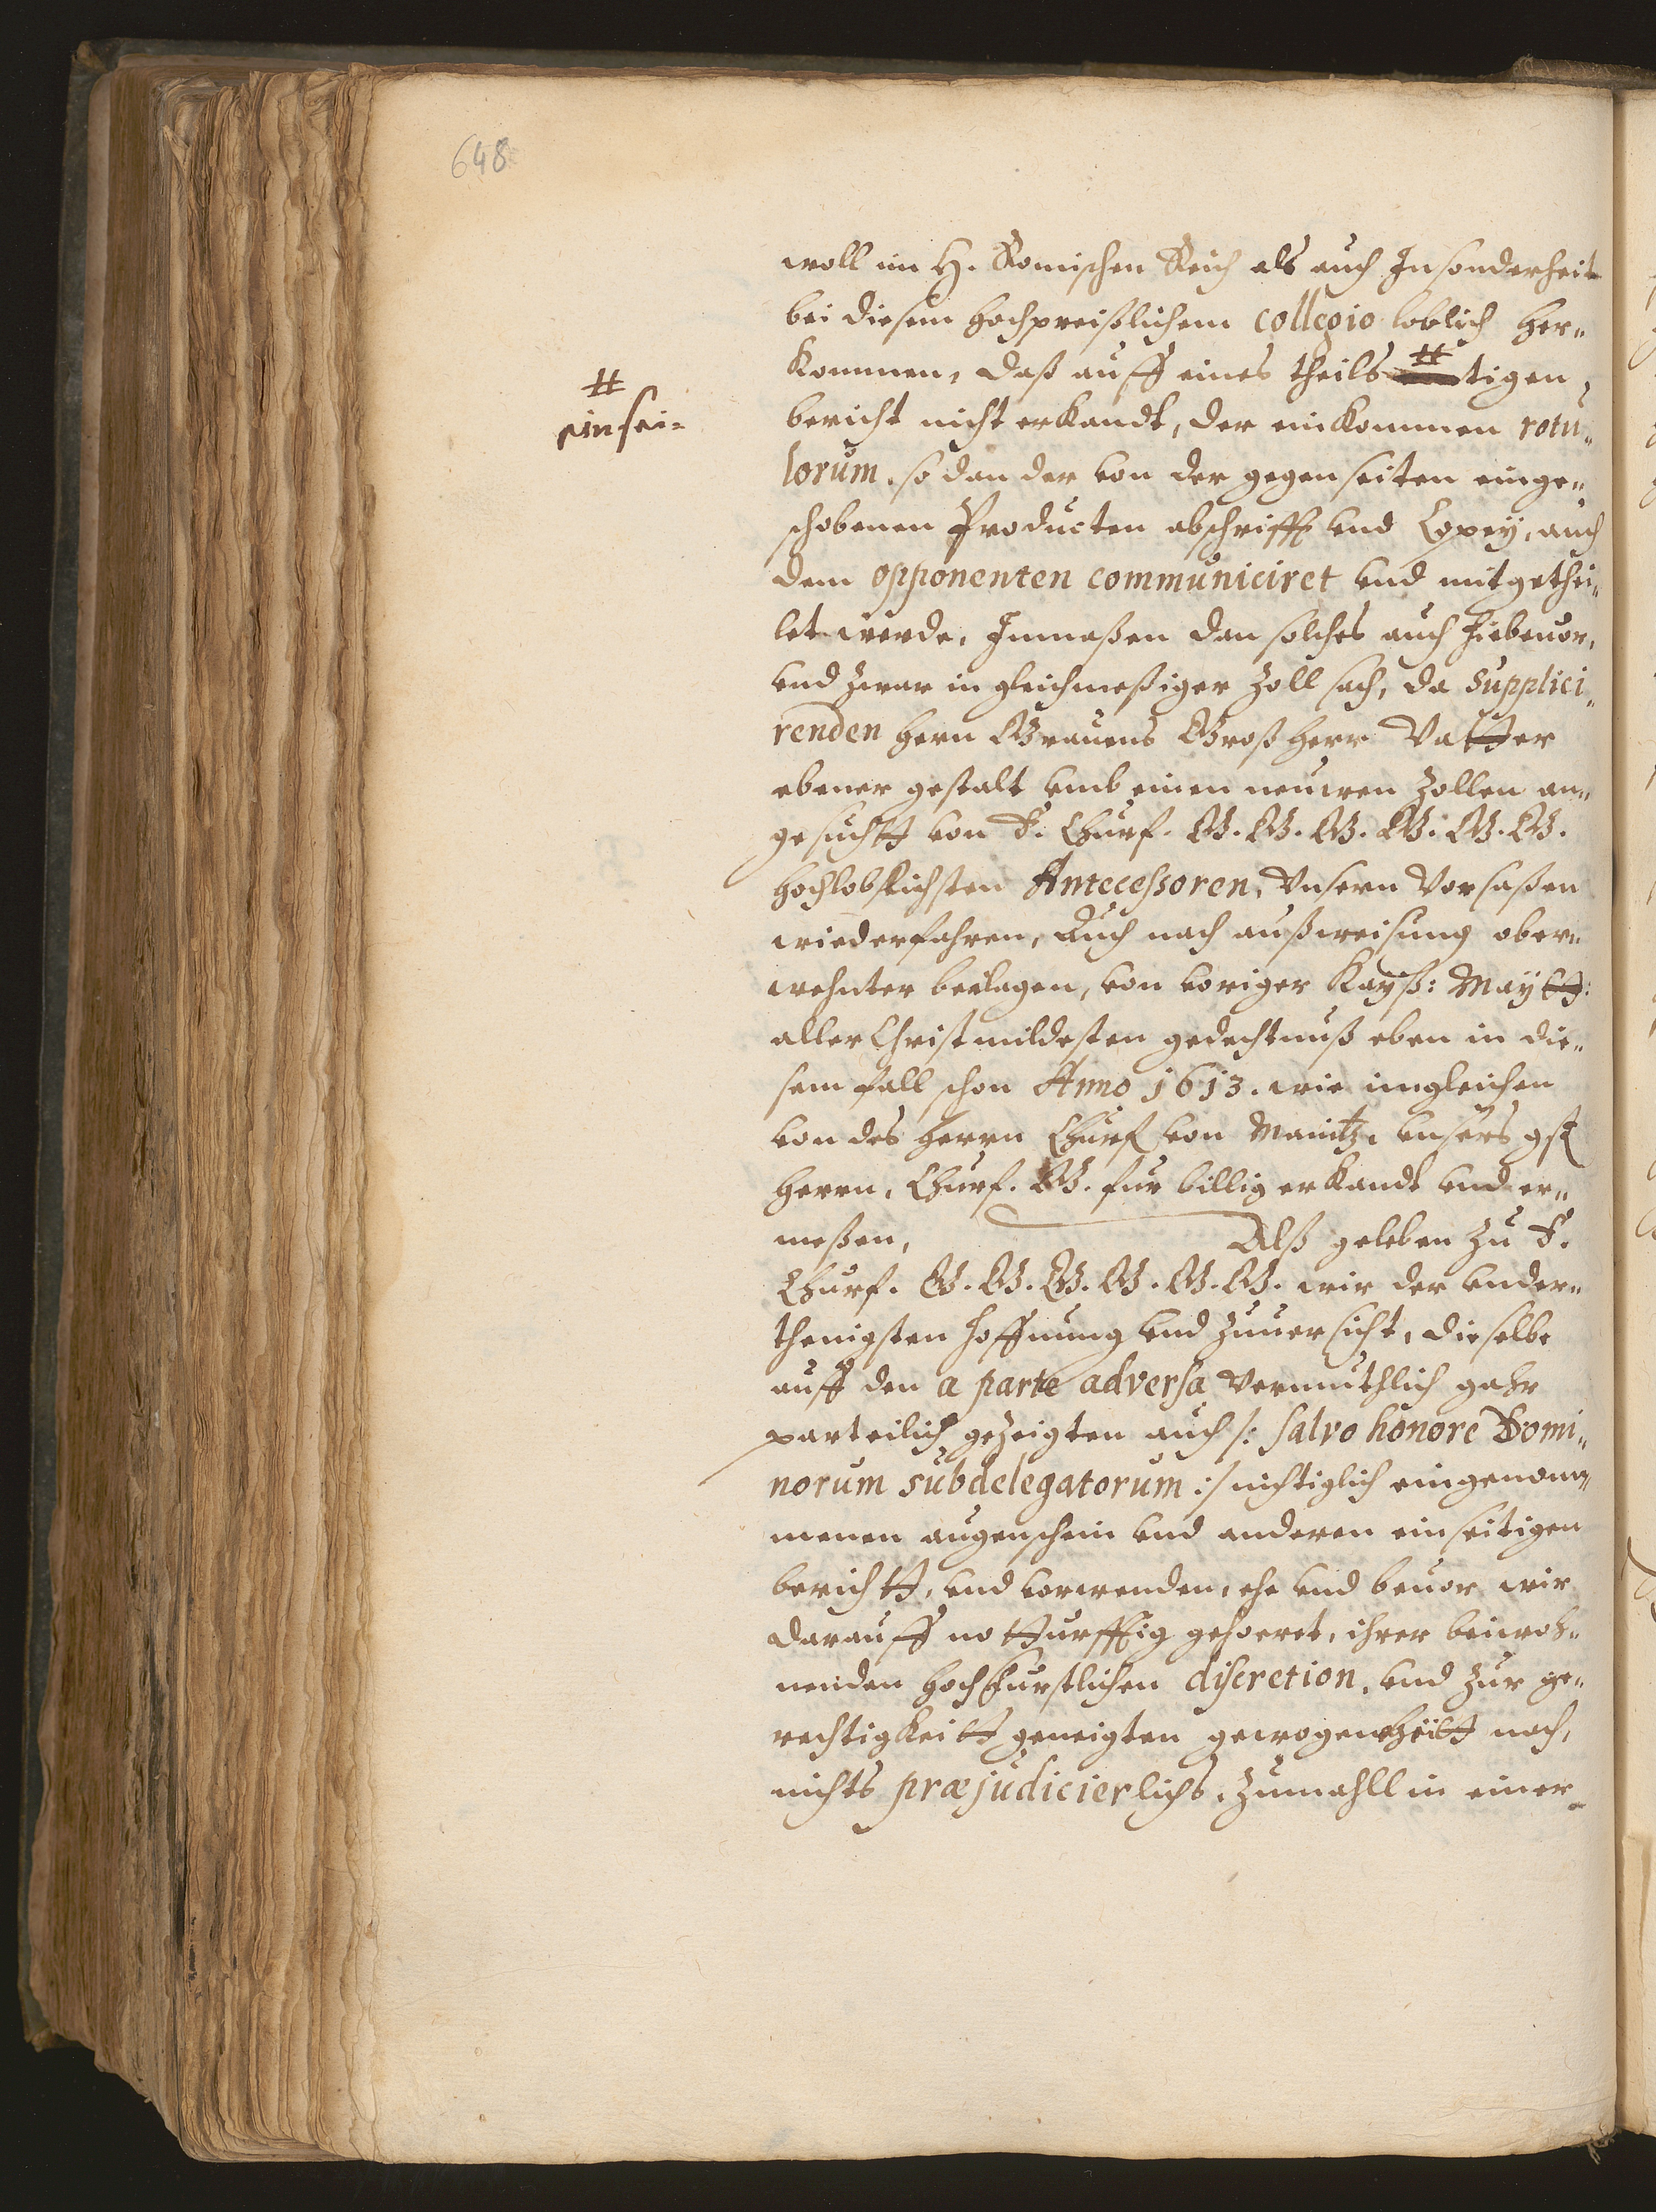 648
woll im H. Romischen Reich als auch Insonderheit
bei diesem hochpreißlichem collegio loblich her„
kommen, daß auff eines theils # tigen
#
einsei=
bericht nicht erkandt, der einkommen rotu„
lorum. so dan der von der gegenseiten einge„
schobenen Producten abschrifft vnd Copey, auch
dem opponenten communiciret vnd mitgethei„
let werde, Inmaßen dan solches auch hiebeuor,
vnd zwar in gleichmeßiger Zoll sach, da supplici„
renden hern Grauens Groß herr Vatter
ebener gestalt vmb einen neuwen Zollen an„
gesuchtt von E. Churf. G. G. G. G. G. G.
hochloblichsten Antecessoren, Vnsern Vorsaßen
wiederfahren, Auch nach außweisung ober„
wehnter beilagen, von voriger Kayß: Maytt:
aller Christmildesten gedechtnuß eben in die„
sem fall schon Anno 1613. wie imgleichen
von des herrn Churf von Maintz, vnsers gst
herrn, Churf. G. fur billig erkandt vnd er„
meßen, Alß geleben zu E.
Churf. G. G. G. G. G. G. wir der vnder„
thenigsten hoffnung vnd zuuersicht, dieselbe
auff den a parte adversa vermuthlich gahr
parteilich gezeigten auch /: salvo honore Domi„
norum subdelegatorum :/ nichtiglich eingenom„
menen augenschein vnd anderen einseitigen
berichtt, vnd vorwenden, ehe vnd beuor wir
darauff notturfftig gehoeret, ihrer beiwoh„
nenden hochfurstlichen discretion, vnd zur ge„
rechtigkeitt geneigten gewogenheitt nach,
nichts præjudicierlichs, zumahll in einer